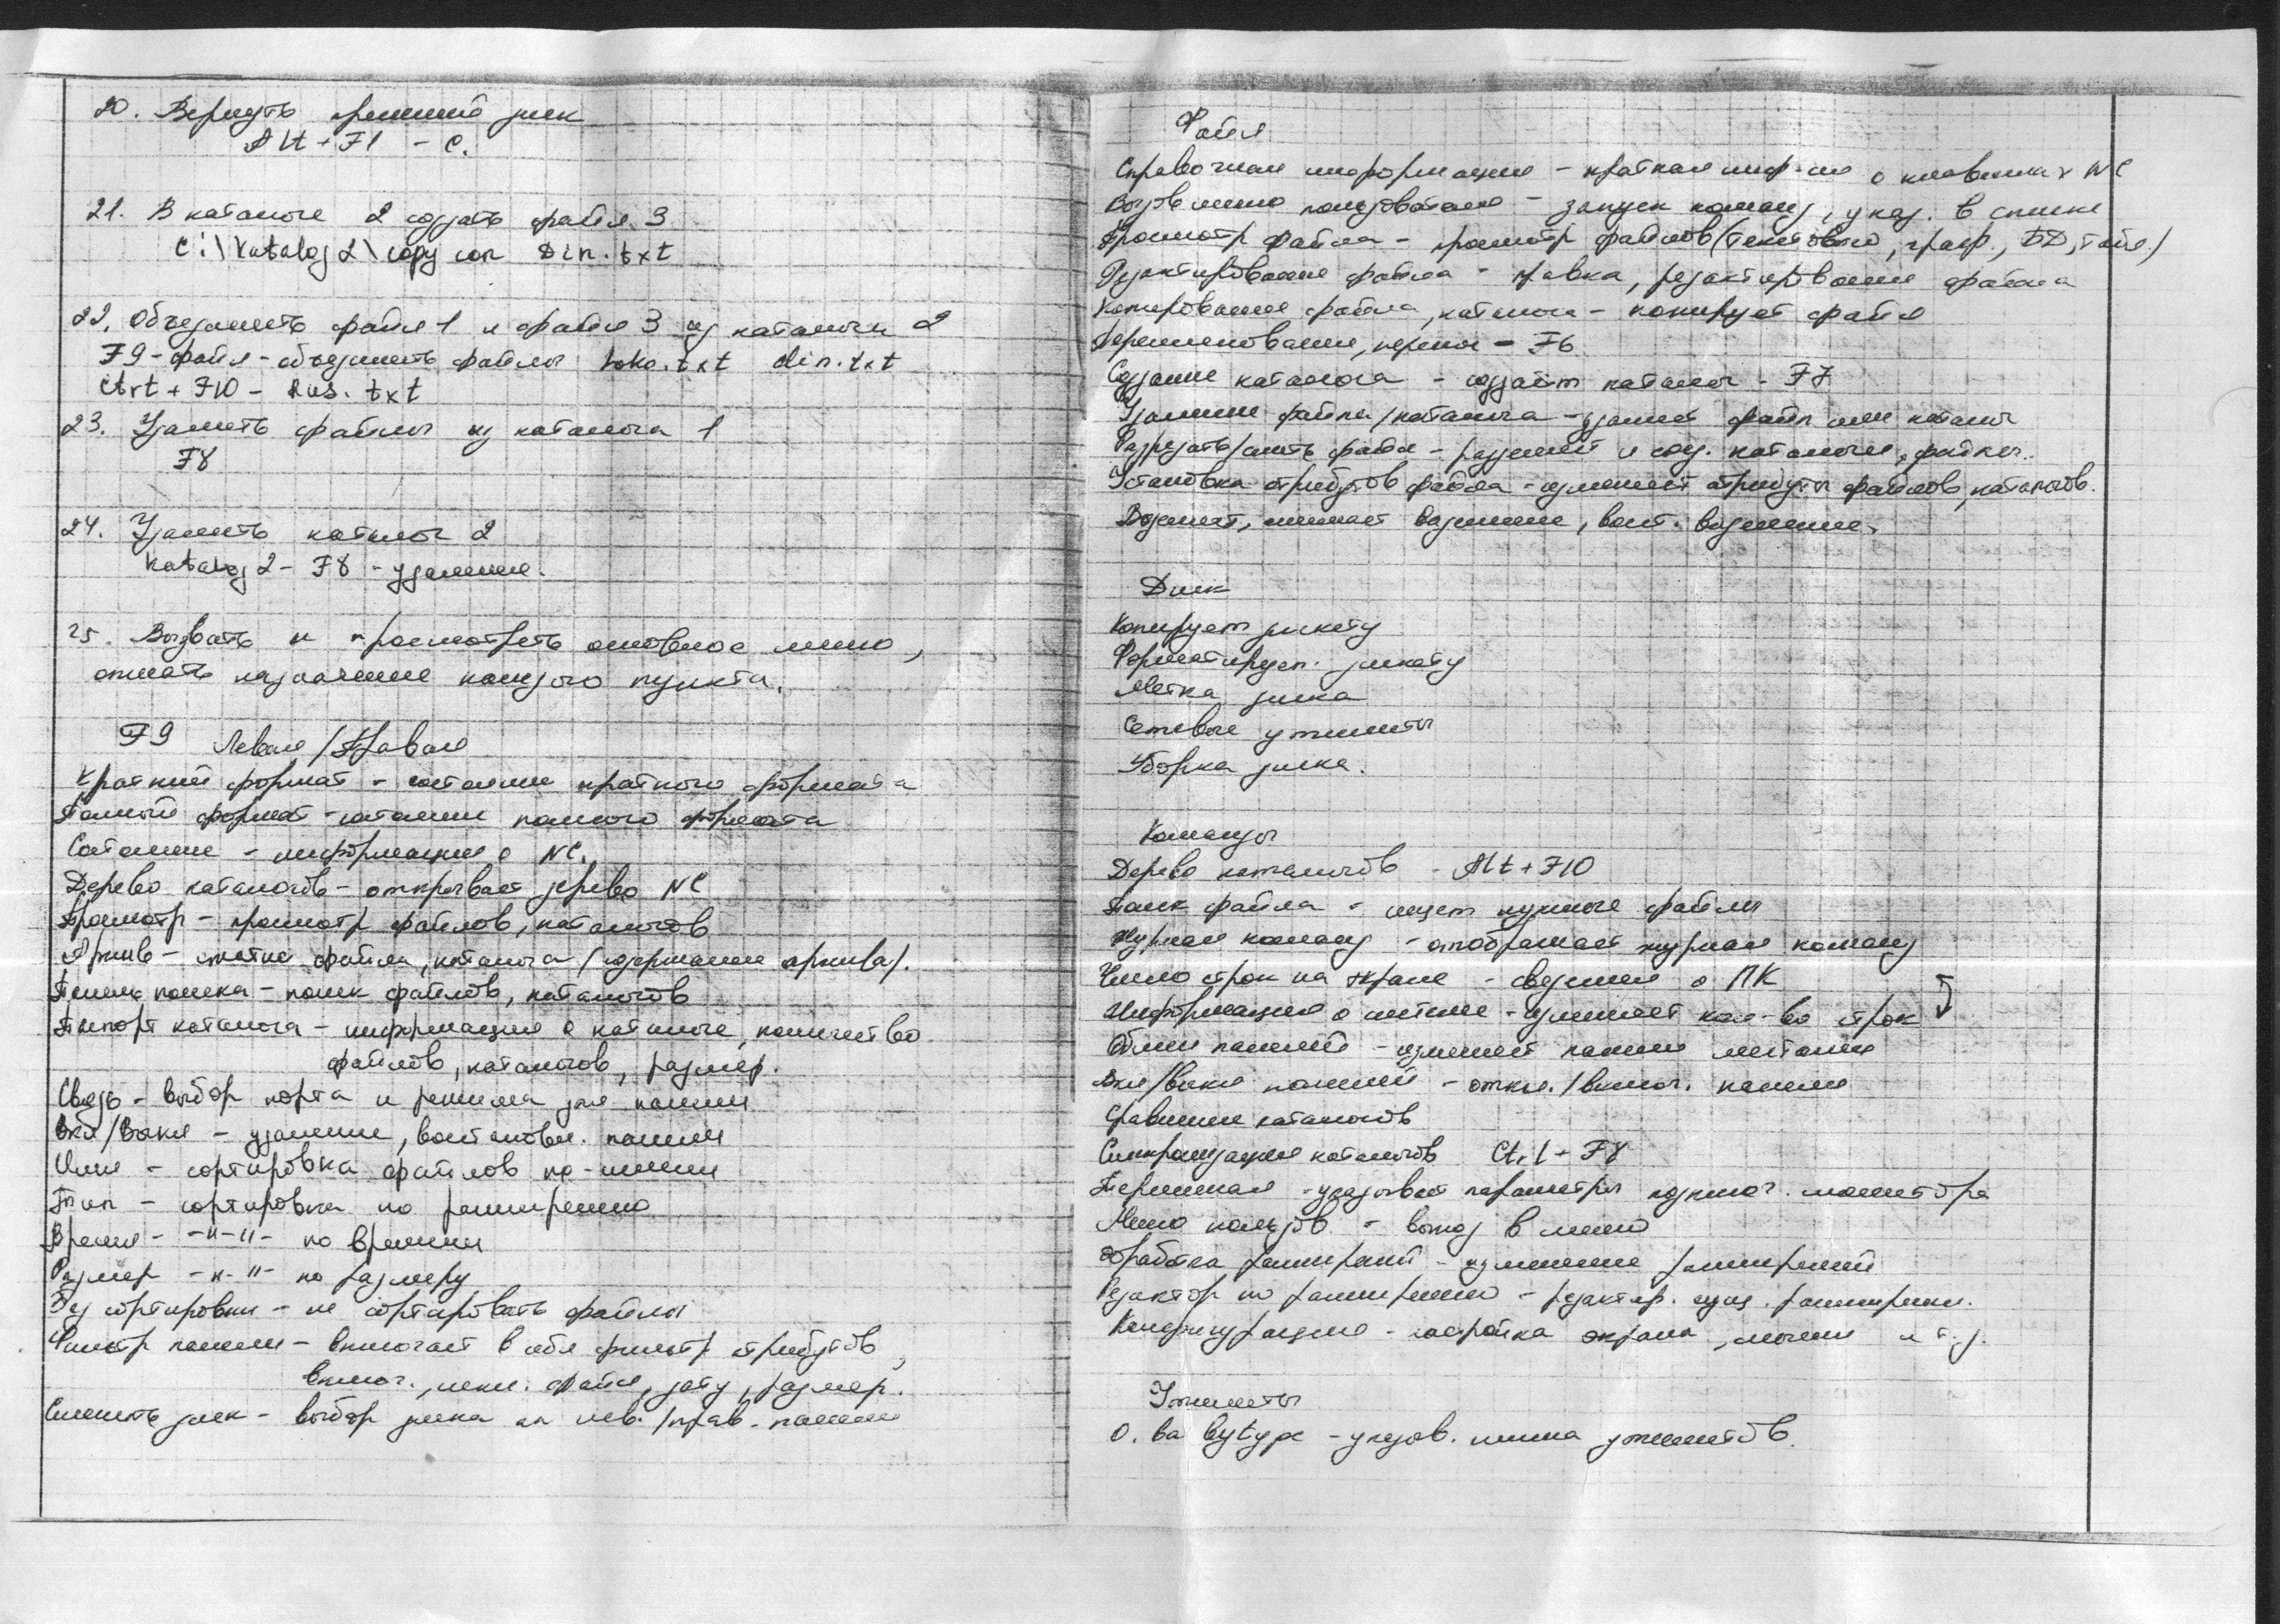 20. Вернуть прежний диск
Alt + F1 - C.
21. В каталоге 2 создать файл 3
C:\Katalog 2\copy con Din.txt
22. Объединить файл 1 и файл 3 из каталога 2
F9 - файл - объединить файлы toko.txt din.txt
Ctrt + F10 - Rus.txt
23. Удалить файлы из каталога 1
F8
24. Удалить каталог 2
Katalog 2 - F8 - удаление.
25. Вызвать и просмотреть основное меню,
описать назначение каждого пункта.
F9 Левая / Правая
Краткий формат - состояние краткого формата
Полный формат - состояние полного формата
Состояние - информация о NC.
Дерево каталогов - открывает дерево NC
Просмотр - просмотр файлов, каталогов
Архив - сжатие файла, каталога (содержание архива).
Панель поиска - поиск файлов, каталогов
Паспорт каталога - информация о каталоге, количество
файлов, каталогов, размер.
Связь - выбор порта и режима для панели
Вкл/Выкл - удаление, восстановл. панели
Имя - сортировка файлов по имени
Тип - сортировка по расширению
Время - -"-"- по времени
Размер -"-"- по размеру
Без сортировки - не сортировать файлы
Фильтр панели - включает в себя фильтр атрибутов,
включ., искл. файл, дату, размер.
Сменить диск - выбор диска на лев./прав. панели
Файл
Справочная информация - краткая инф-ия о клавишах NC
Вызов меню пользователя - запуск команд, указ. в списке
Просмотр файла - просмотр файлов (текстовый, граф., БД, табл.)
Редактирование файла - правка, редактирование файла
Копирование файла, каталога - копирует файл
Переименование, перенос - F6
Создание каталога - создаёт каталог - F7
Удаление файла/каталога - удаляет файл или каталог
Разрезать/слить файл - разделяет и соед. каталоги, файлы.
Установка атрибутов файла - изменяет атрибуты файлов, каталогов.
Выделяет, снимает выделение, восст. выделение.
Диск
Копирует дискету
Форматирует. дискету
Метка диска
Сетевые утилиты
Уборка диска.
Команды
Дерево каталогов - Alt + F10
Поиск файла - ищет нужные файлы
Журнал команд - отображает журнал команд
Число строк на экране - сведения о ПК
Информация о системе - изменяет кол-во строк
Обмен панелей - изменяет панели местами
Вкл/выкл панелей - откл./включ. панели
Сравнение каталогов
Синхронизация каталогов Ctrl + F8
Терминал - указывает параметры подключ. монитора
Меню пользов. - выход в меню
Обработка расширений - изменение расширений
Редактор по расширению - редактир. сущ. расширения.
Конфигурация - настройка экрана, мыши и т.д.
Утилиты
- указов. утилитов.